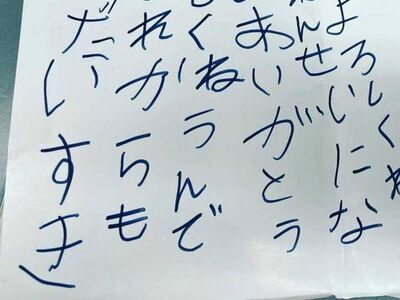 よろしくね
んせいにな
ありがとう
くねうんで
れからも
だいすき